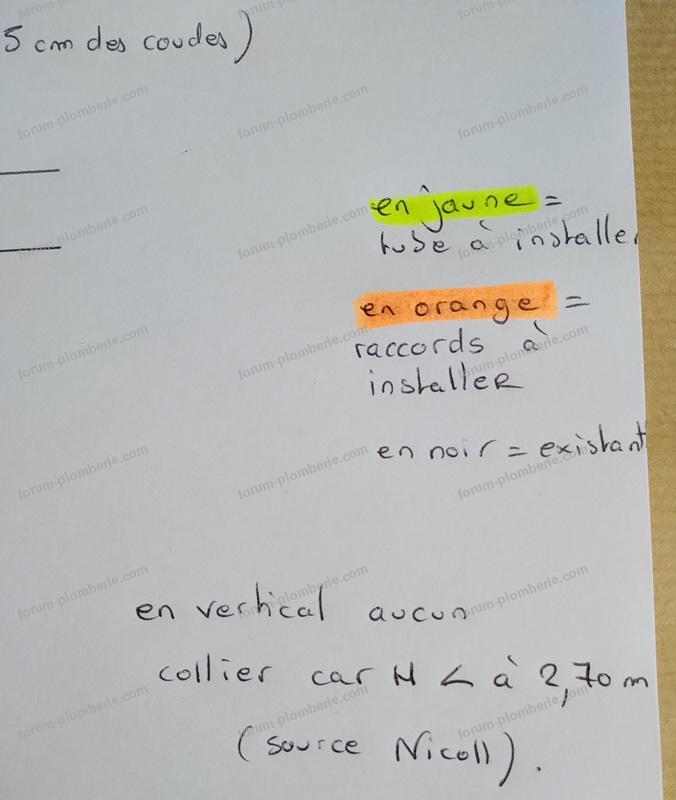 5 cm des coudes)
en jaune =
tube à installer
en orange =
raccords à
installer
en noir = existant
en vertical aucun
collier car H < à 2,70 m
(source Nicoll).
forum-plomberie.com